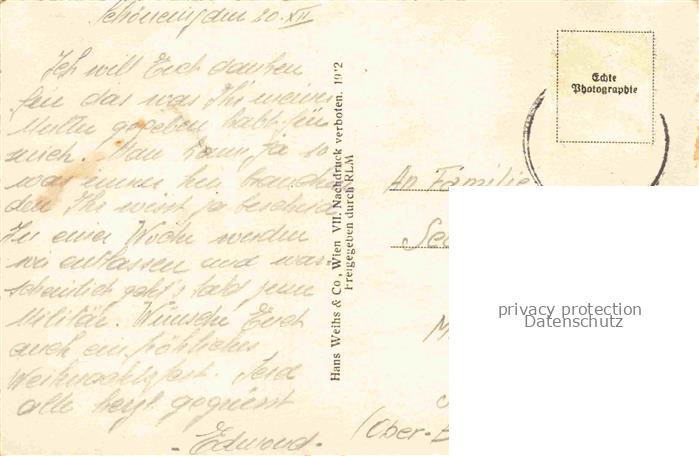 den 20. XII
Ich will Euch danken
für das was Ihr meiner
Mutter gegeben habt für
mich. Man kann ja so
was immer hin brauche
den Ihr wisst ja bescheid
In einer Woche werden
wir entlassen und war-
scheinlich geht's bald zum
Militär. Wünsche Euch
auch ein fröhliches
Weihnachtsfest. Seid
alle herzl. gegrüsst
- Edmond -
Hans Weihs & Co, Wien VII. Nachdruck verboten.
Freigegeben durch RLM
Echte
Photographie
An Familie
Se
M
(Ober-E
privacy protection
Datenschutz